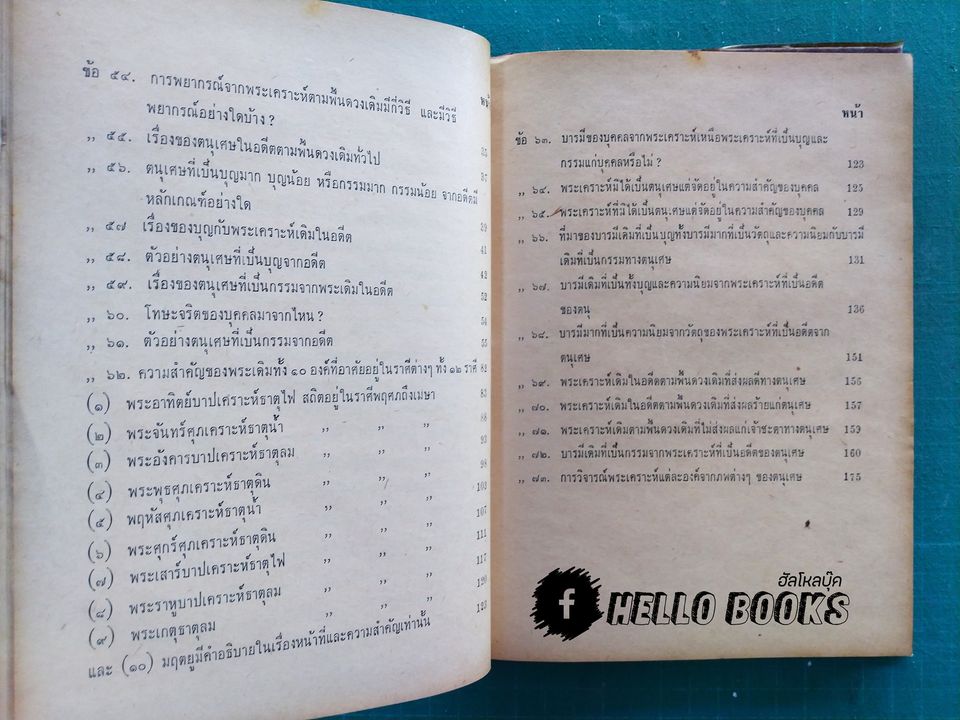 หน้า
ข้อ ๕๔. การพยากรณ์จากพระเคราะห์ตามพื้นดวงเดิมมีกี่วิธี และมีวิธี
พยากรณ์อย่างใดบ้าง ? 35
,, ๕๕. เรื่องของตนุเศษในอดีตตามพื้นดวงเดิมทั่วไป 37
,, ๕๖. ตนุเศษที่เป็นบุญมาก บุญน้อย หรือกรรมมาก กรรมน้อย จากอดีตมี
หลักเกณฑ์อย่างใด 39
,, ๕๗ เรื่องของบุญกับพระเคราะห์เดิมในอดีต 41
,, ๕๘. ตัวอย่างตนุเศษที่เป็นบุญจากอดีต 42
,, ๕๙. เรื่องของตนุเศษที่เป็นกรรมจากพระเดิมในอดีต 52
,, ๖๐. โทษะจริตของบุคคลมาจากไหน ? 54
,, ๖๑. ตัวอย่างตนุเศษที่เป็นกรรมจากอดีต 55
,, ๖๒. ความสำคัญของพระเดิมทั้ง ๑๐ องค์ที่อาศัยอยู่ในราศีต่างๆ ทั้ง ๑๒ ราศี 82
(๑) พระอาทิตย์บาปเคราะห์ธาตุไฟ สถิตอยู่ในราศีพฤศภถึงเมษา 83
(๒) พระจันทร์ศุภเคราะห์ธาตุน้ำ ,, ,, ,, 88
(๓) พระอังคารบาปเคราะห์ธาตุลม ,, ,, ,, 93
(๔) พระพุธศุภเคราะห์ธาตุดิน ,, ,, ,, 98
(๕) พฤหัสศุภเคราะห์ธาตุน้ำ ,, ,, ,, 103
(๖) พระศุกร์ศุภเคราะห์ธาตุดิน ,, ,, ,, 107
(๗) พระเสาร์บาปเคราะห์ธาตุไฟ ,, ,, ,, 111
(๘) พระราหูบาปเคราะห์ธาตุลม ,, ,, ,, 117
(๙) พระเกตุธาตุลม ,, ,, ,, 120
และ (๑๐) มฤตยูมีคำอธิบายในเรื่องหน้าที่และความสำคัญเท่านั้น 123
หน้า
ข้อ ๖๓. บารมีของบุคคลจากพระเคราะห์เหนือพระเคราะห์ที่เป็นบุญและ
กรรมแก่บุคคลหรือไม่ ? 123
,, ๖๔. พระเคราะห์มิได้เป็นตนุเศษแต่จัดอยู่ในความสำคัญของบุคคล 125
,, ๖๕. พระเคราะห์ที่มิได้เป็นตนุเศษแต่จัดอยู่ในความสำคัญของบุคคล 129
,, ๖๖. ที่มาของบารมีเดิมที่เป็นบุญทั้งบารมีมากที่เป็นวัตถุและความนิยมกับบารมี
เดิมที่เป็นกรรมทางตนุเศษ 131
,, ๖๗. บารมีเดิมที่เป็นทั้งบุญและความนิยมจากพระเคราะห์ที่เป็นอดีต
ของตนุ 136
,, ๖๘. บารมีมากที่เป็นความนิยมจากวัตถุของพระเคราะห์ที่เป็นอดีตจาก
ตนุเศษ 151
,, ๖๙. พระเคราะห์เดิมในอดีตตามพื้นดวงเดิมที่ส่งผลดีทางตนุเศษ 156
,, ๗๐. พระเคราะห์เดิมในอดีตตามพื้นดวงเดิมที่ส่งผลร้ายแก่ตนุเศษ 157
,, ๗๑. พระเคราะห์เดิมตามพื้นดวงเดิมที่ไม่ส่งผลแก่เจ้าชะตาทางตนุเศษ 159
,, ๗๒. บารมีเดิมที่เป็นกรรมจากพระเคราะห์ที่เป็นอดีตของตนุเศษ 160
,, ๗๓. การวิจารณ์พระเคราะห์แต่ละองค์จากภพต่างๆ ของตนุเศษ 175
ฮัลโหลบุ๊ค
f HELLO BOOKS